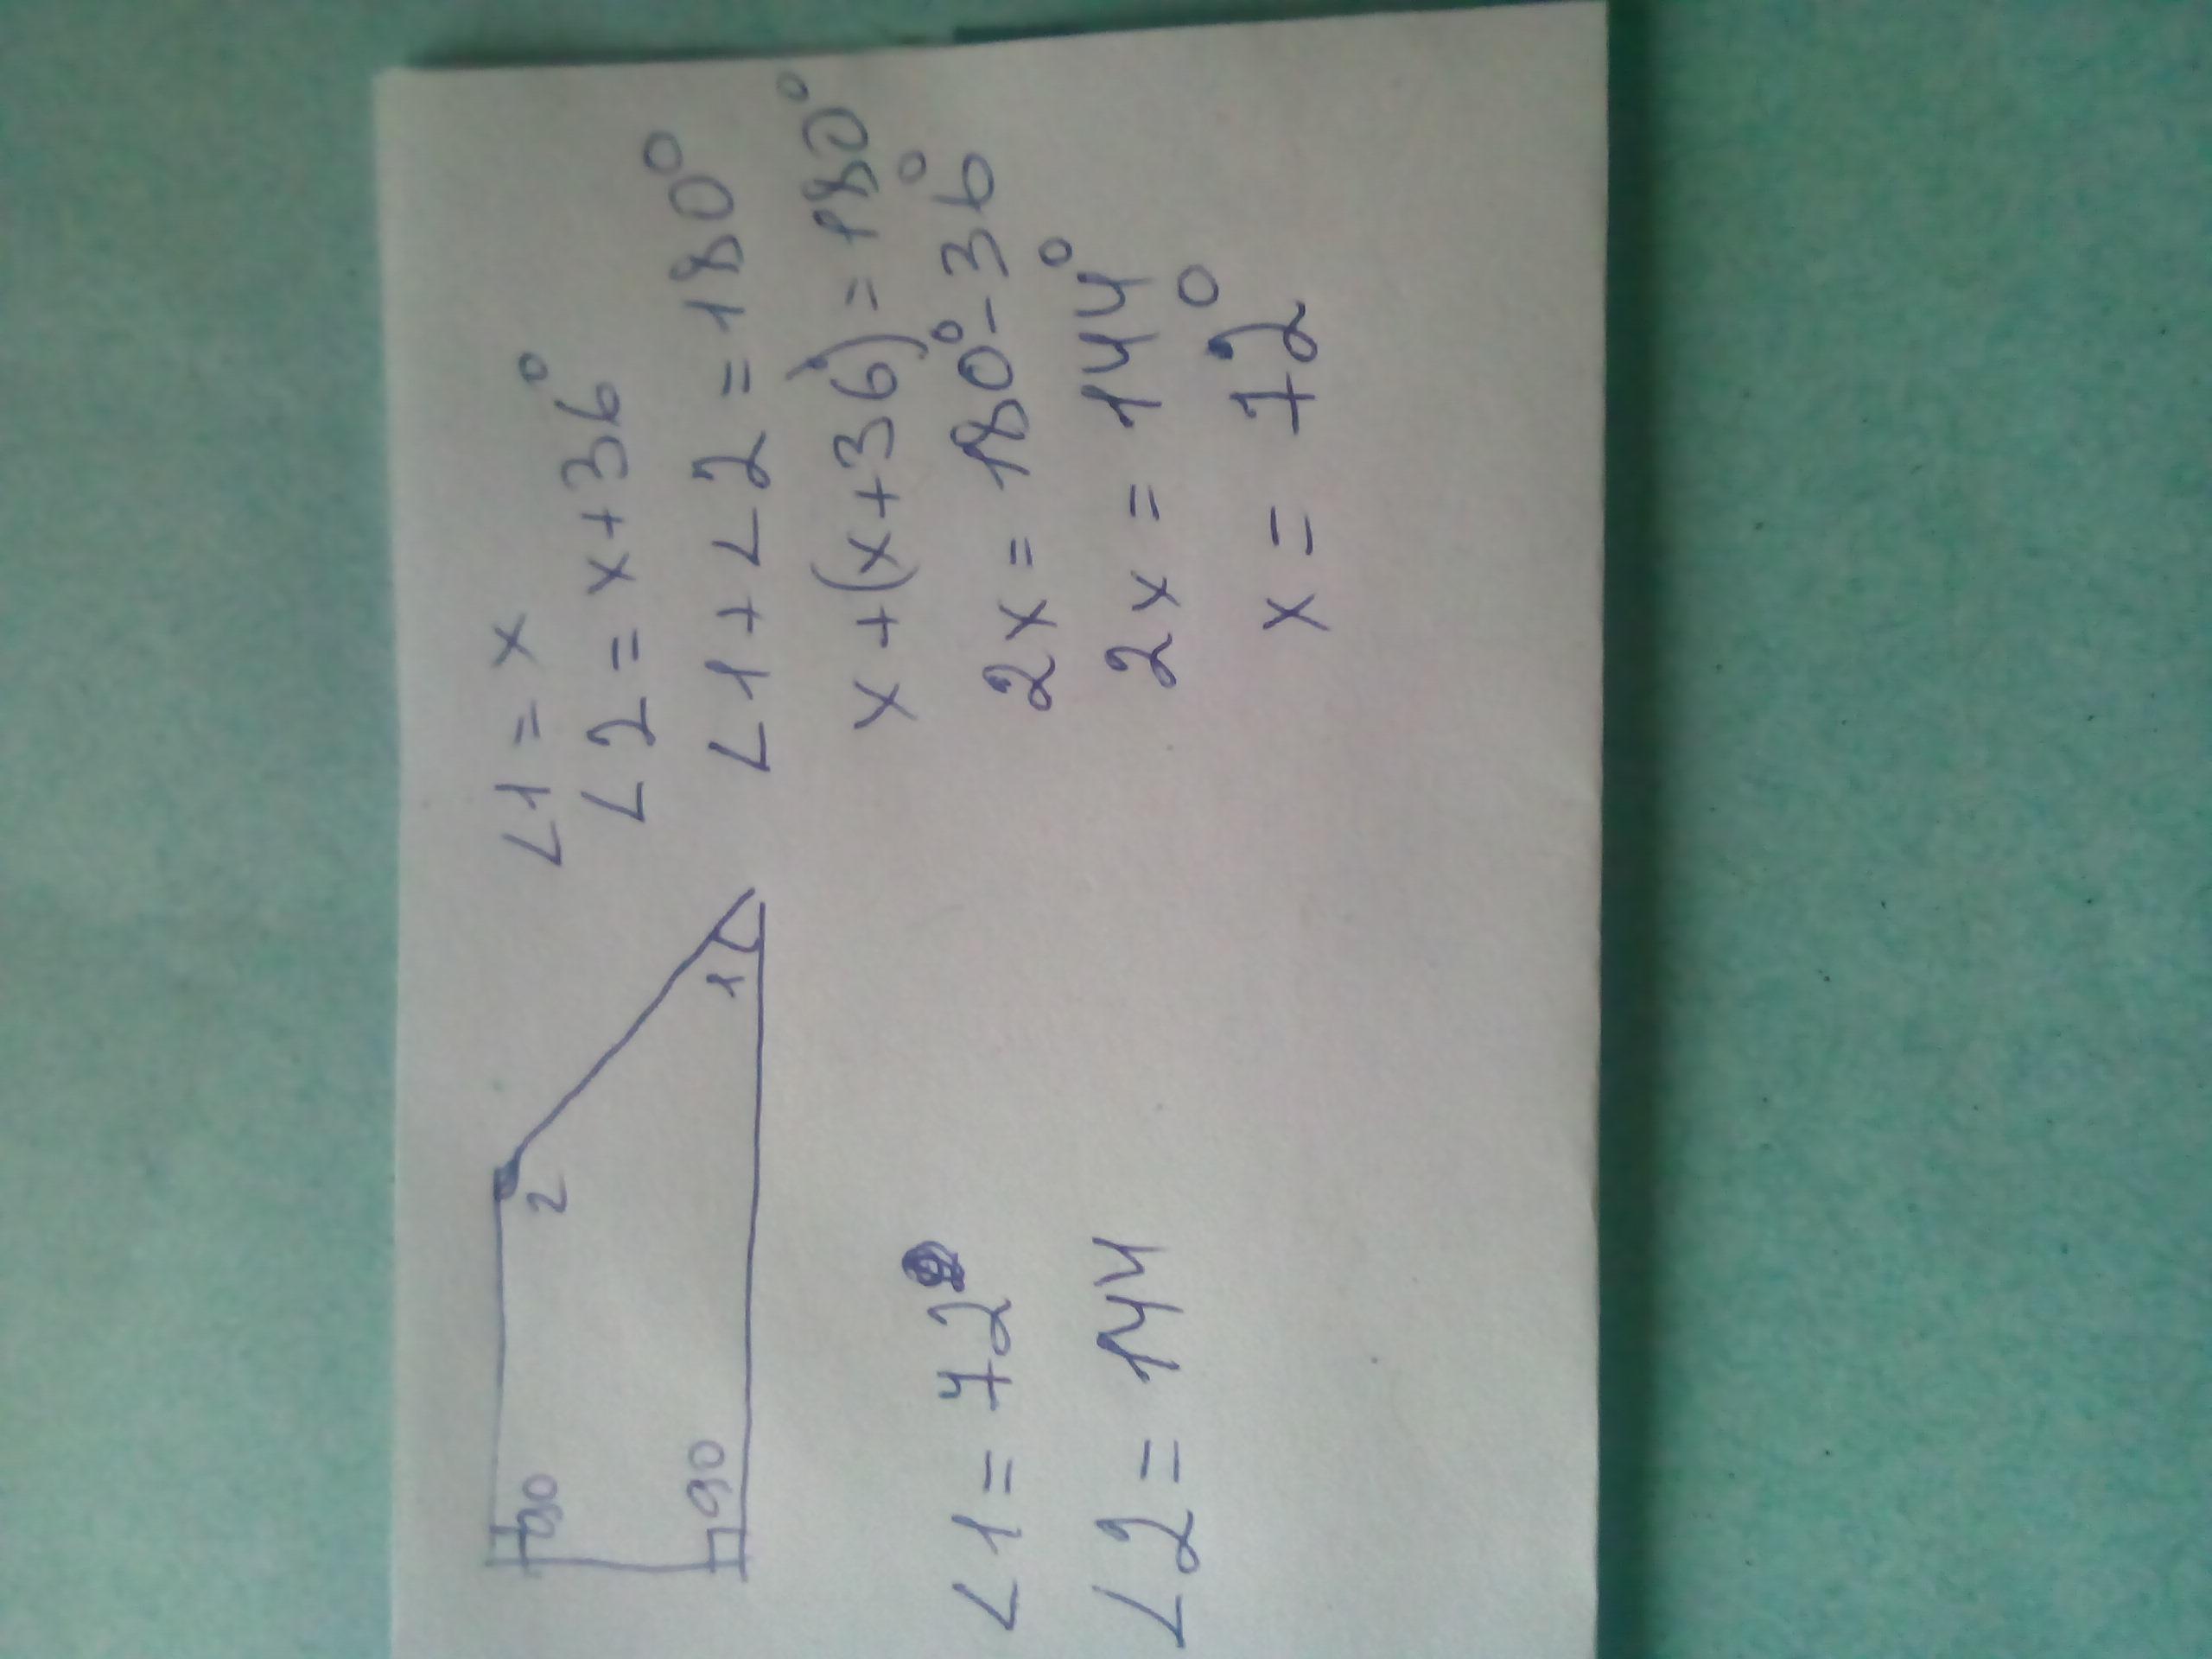 90
2
90
1
∠1 = x
∠2 = x+36°
∠1 + ∠2 = 180°
x + (x+36°) = 180°
2x = 180° - 36°
2x = 144°
x = 72°
∠1 = 72°
∠2 = 144